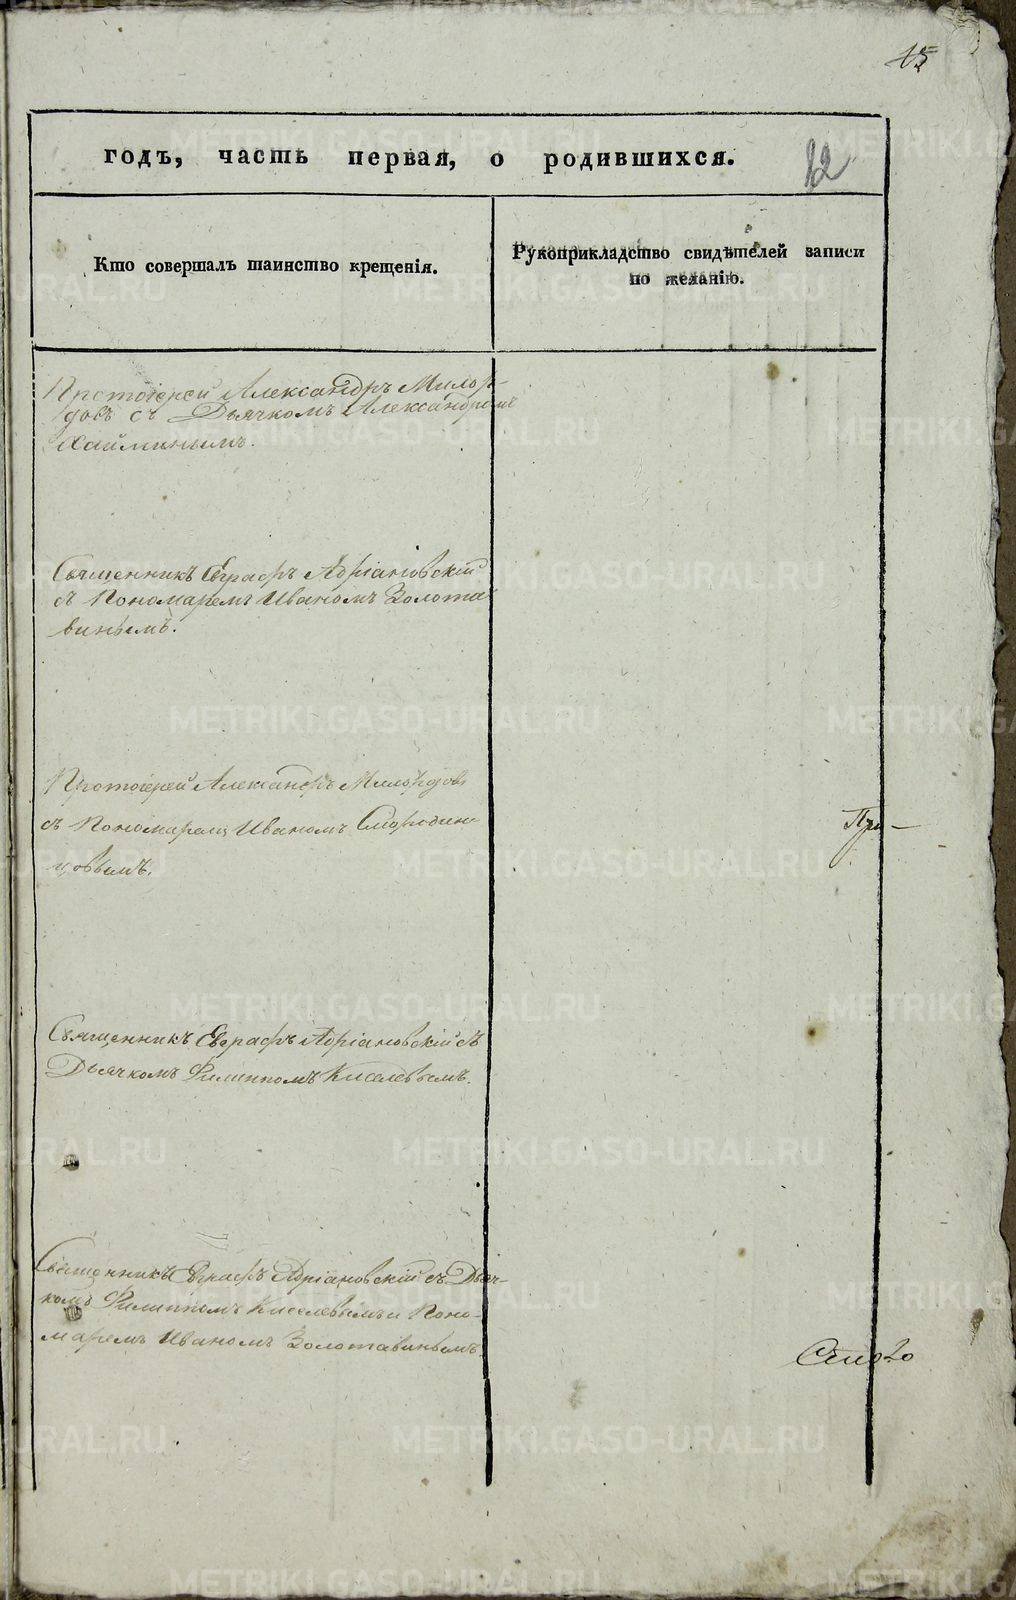 15
годъ, часть первая, о родившихся.
12
Кто совершалъ таинство крещенія.
Рукоприкладство свидѣтелей записи
по желанію.
Протоіерей Александръ Милор-
довъ съ Дьячкомъ Александромъ
Хайминымъ.
Священникъ Евграфъ Адріановскій
съ Пономаремъ Иваномъ Золота-
винымъ.
Протоіерей Александръ Милордовъ
съ Пономаремъ Иваномъ Смородин-
цовымъ.
При-
Священникъ Евграфъ Адріановскій съ
Дьячкомъ Филиппомъ Киселевымъ.
Священникъ Евграфъ Адріановскій съ Дьяч-
комъ Филиппомъ Киселевымъ и Поно-
маремъ Иваномъ Золотавинымъ.
METRIKI.GASO-URAL.RU